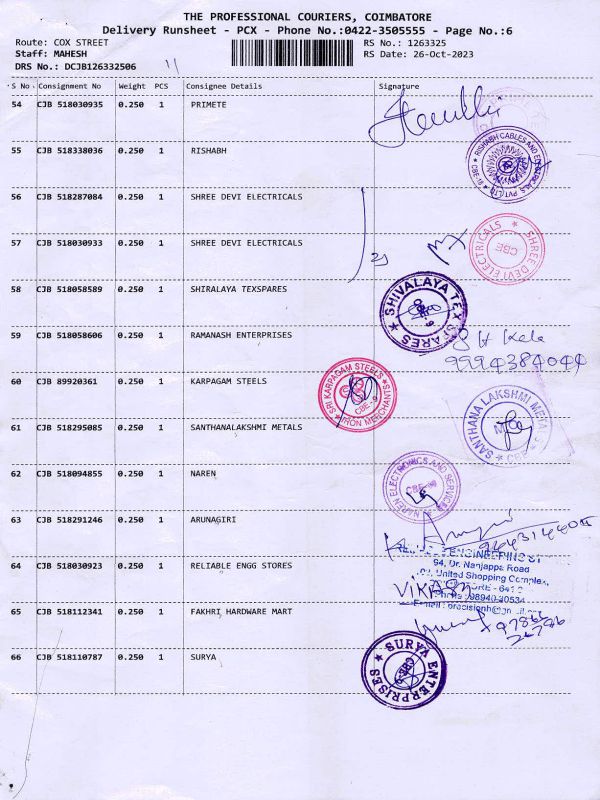 THE PROFESSIONAL COURIERS, COIMBATORE
Delivery Runsheet - PCX - Phone No.:0422-3505555 - Page No.:6
Route: COX STREET RS No.: 1263325
Staff: MAHESH RS Date: 26-Oct-2023
DRS No.: DCJB126332506
S No Consignment No Weight PCS Consignee Details Signature
54 CJB 518030935 0.250 1 PRIMETE
55 CJB 518338036 0.250 1 RISHABH
RISHABH CABLES AND ELECTRICALS PVT LTD
56 CJB 518287084 0.250 1 SHREE DEVI ELECTRICALS
57 CJB 518030933 0.250 1 SHREE DEVI ELECTRICALS
SHREE DEVI ELECTRICALS
CBE
58 CJB 518058589 0.250 1 SHIRALAYA TEXSPARES
SHIVALAYA TEX SPARES
59 CJB 518058606 0.250 1 RAMANASH ENTERPRISES
60 CJB 89920361 0.250 1 KARPAGAM STEELS
SRI KARPAGAM STEELS
IRON MERCHANTS
CBE-9
61 CJB 518295085 0.250 1 SANTHANALAKSHMI METALS
SANTHANA LAKSHMI METALS
CBE
62 CJB 518094855 0.250 1 NAREN
NAREN ELECTRONICS AND SERVICES
63 CJB 518291246 0.250 1 ARUNAGIRI
64 CJB 518030923 0.250 1 RELIABLE ENGG STORES
94, Dr. Nanjappa Road
United Shopping Complex,
65 CJB 518112341 0.250 1 FAKHRI HARDWARE MART
66 CJB 518110787 0.250 1 SURYA
SURYA ENTERPRISES
CBE-9